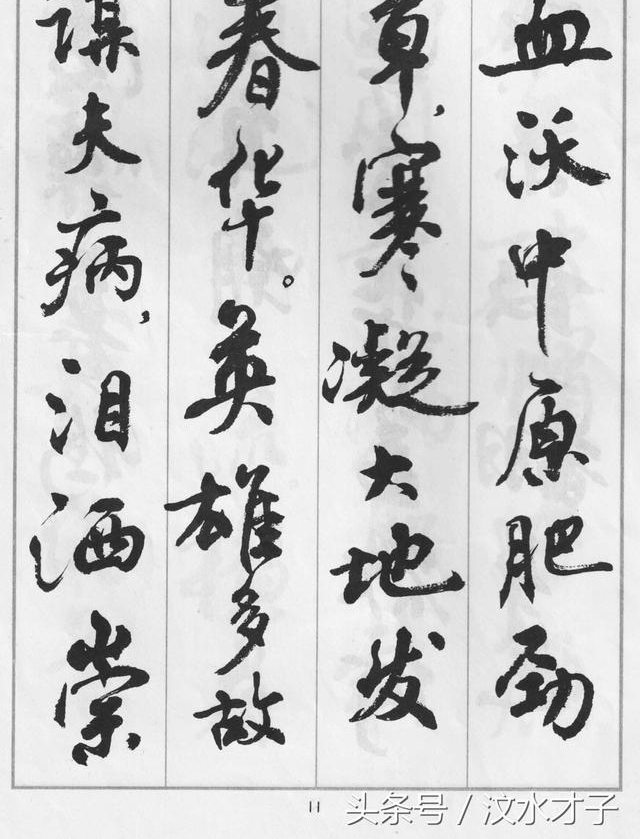 血沃中原肥劲
草，寒凝大地发
春华。英雄多故
谋夫病，泪洒崇
11
头条号 / 汶水才子